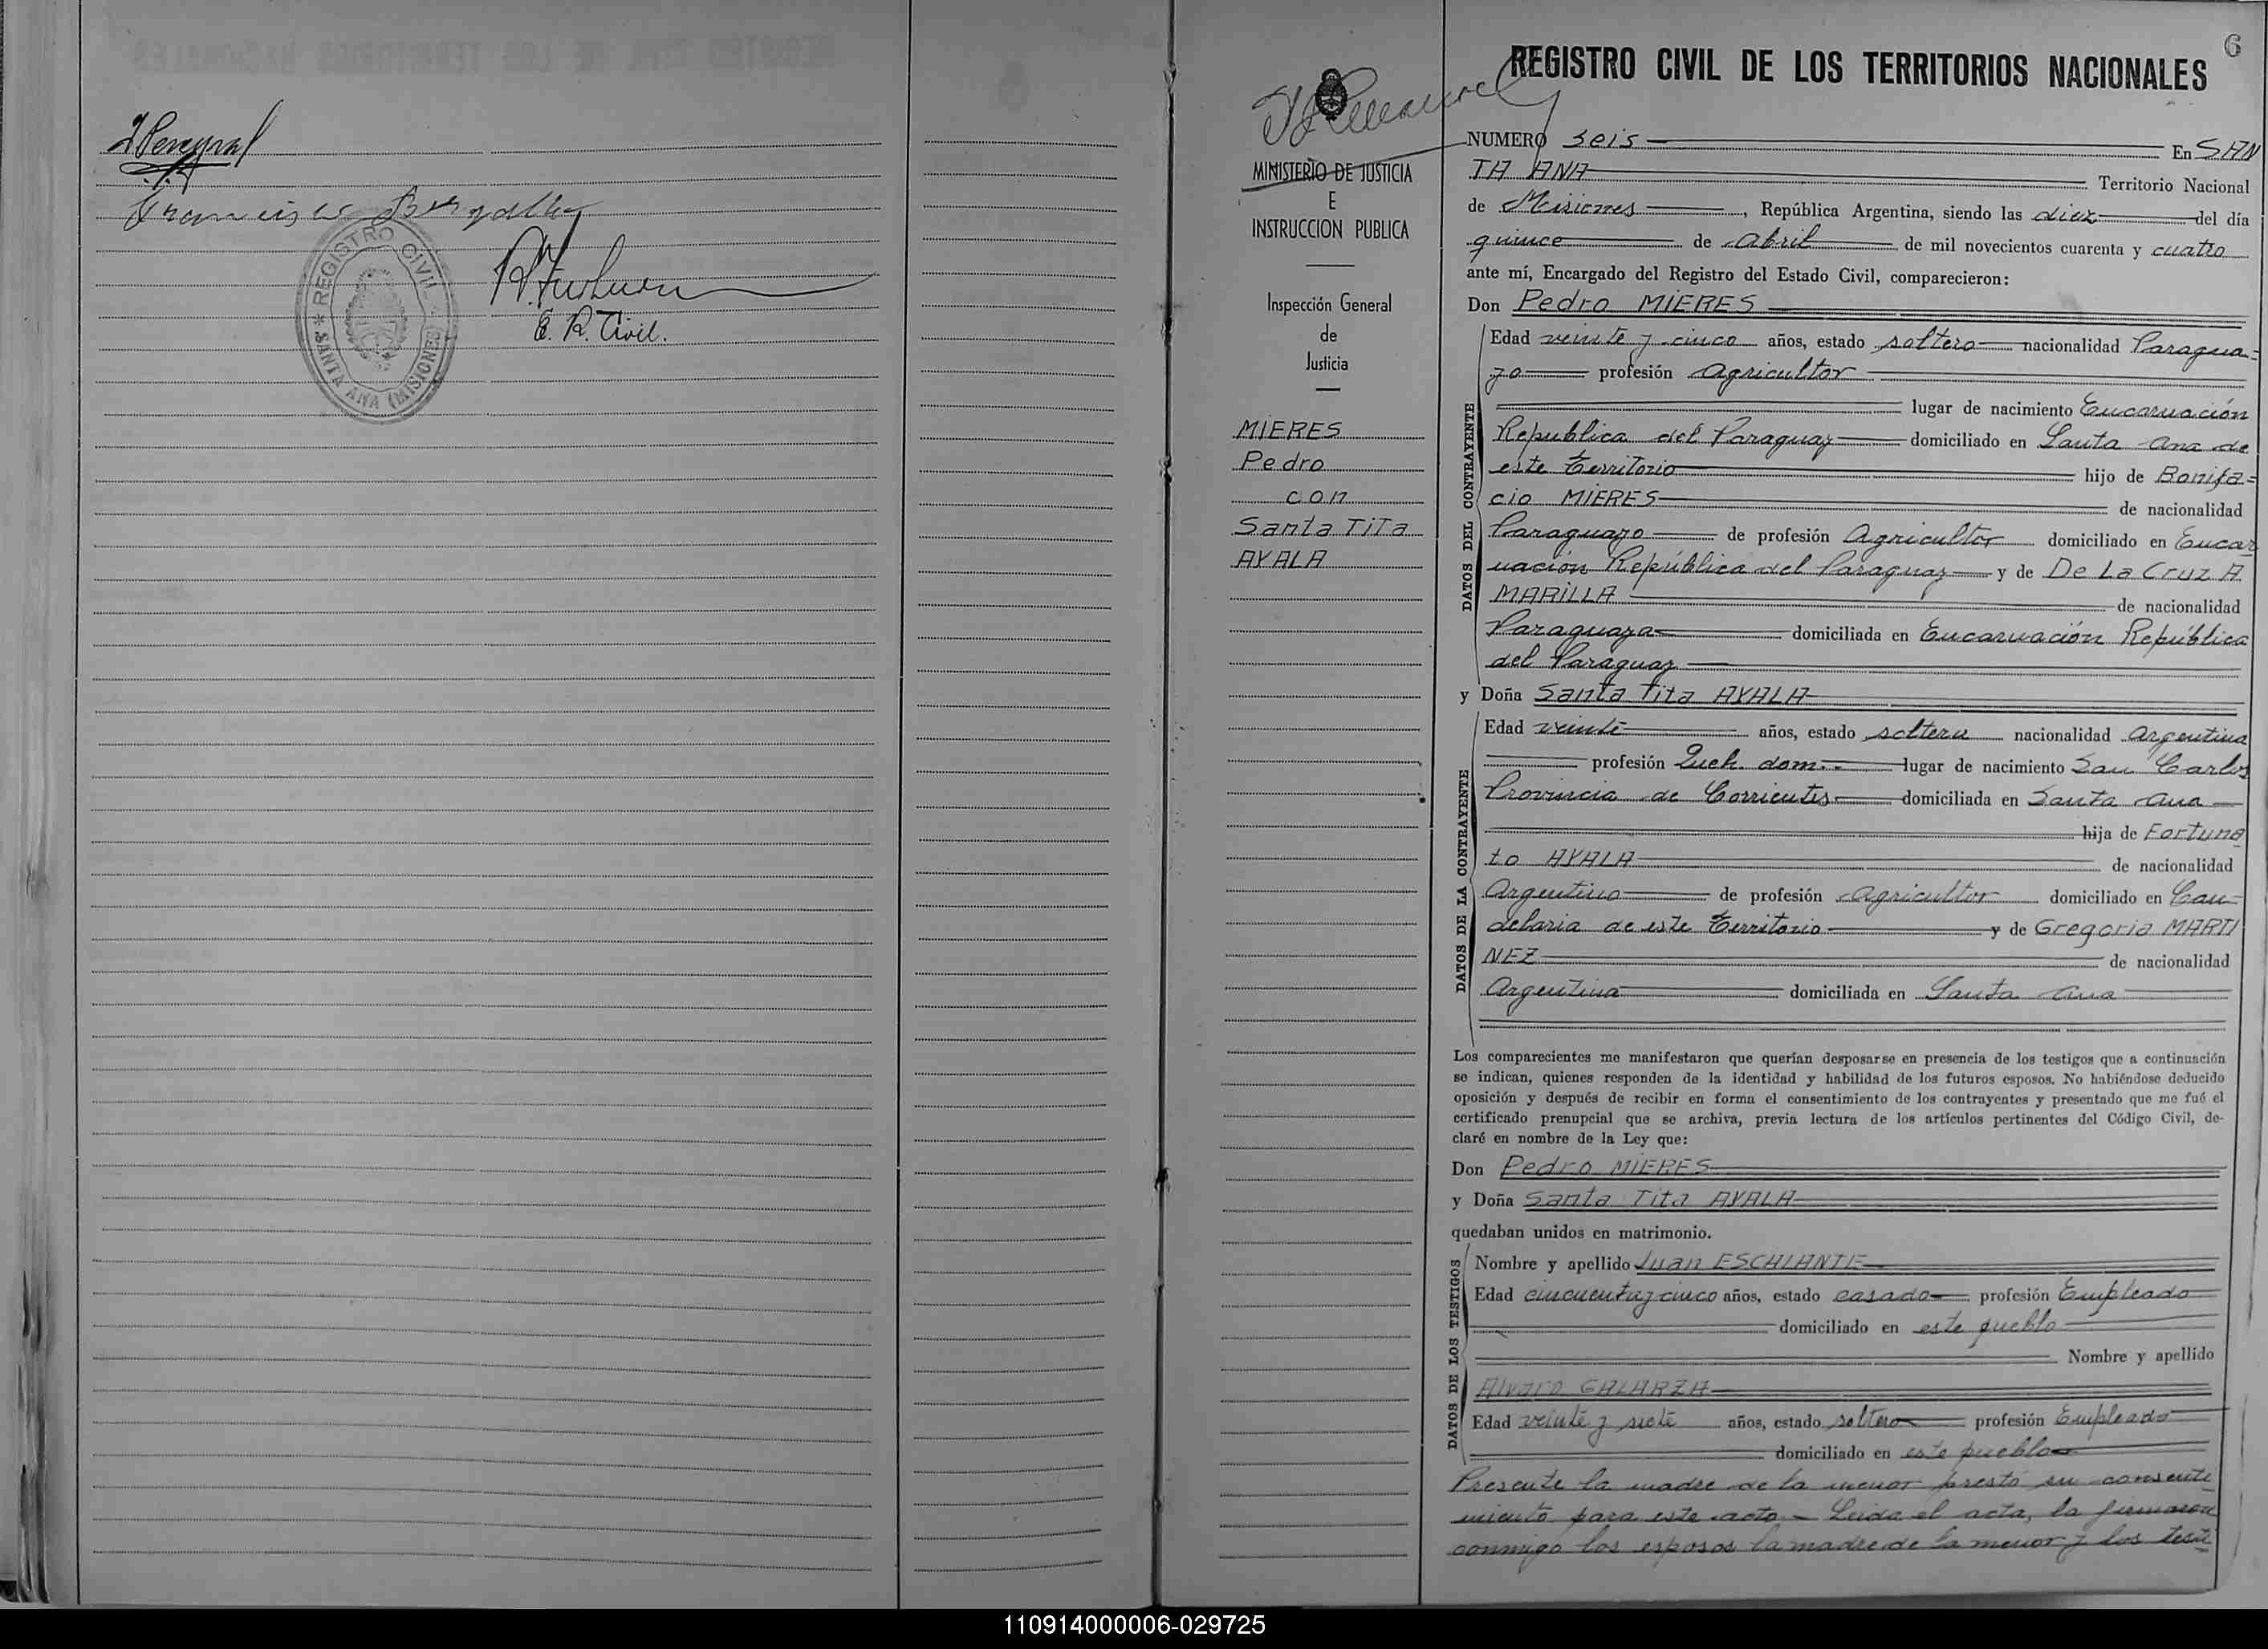 Francisco
REGISTRO CIVIL
* SANTA ANA (MISIONES)
E. R. Civil.
6
REGISTRO CIVIL DE LOS TERRITORIOS NACIONALES
MINISTERIO DE JUSTICIA
E
INSTRUCCION PUBLICA
Inspección General
de
Justicia
MIERES
Pedro
con
Santa Tita
AYALA
NUMERO seis En SAN
TA ANA Territorio Nacional
de Misiones, República Argentina, siendo las diez del día
quince de Abril de mil novecientos cuarenta y cuatro
ante mí, Encargado del Registro del Estado Civil, comparecieron:
Don Pedro MIERES
DATOS DEL CONTRAYENTE
Edad veinte y cinco años, estado soltero nacionalidad Paragua=
yo profesión Agricultor
lugar de nacimiento Encarnación
Republica del Paraguay domiciliado en Santa Ana de
este Territorio hijo de Bonifa=
cio MIERES de nacionalidad
Paraguayo de profesión Agricultor domiciliado en Encar
nación República del Paraguay y de De La Cruz A
MARILLA de nacionalidad
Paraguaya domiciliada en Encarnación República
del Paraguay
y Doña Santa Tita AYALA
DATOS DE LA CONTRAYENTE
Edad veinte años, estado soltera nacionalidad Argentina
profesión Queh. dom. lugar de nacimiento San Carlos
Provincia de Corrientes domiciliada en Santa Ana
hija de Fortuna
to AYALA de nacionalidad
Argentino de profesión Agricultor domiciliado en Can=
delaria de este Territorio y de Gregoria MARTI
NEZ de nacionalidad
Argentina domiciliada en Santa Ana
Los comparecientes me manifestaron que querían desposarse en presencia de los testigos que a continuación
se indican, quienes responden de la identidad y habilidad de los futuros esposos. No habiéndose deducido
oposición y después de recibir en forma el consentimiento de los contrayentes y presentado que me fué el
certificado prenupcial que se archiva, previa lectura de los artículos pertinentes del Código Civil, de-
claré en nombre de la Ley que:
Don Pedro MIERES
y Doña Santa Tita AYALA
quedaban unidos en matrimonio.
DATOS DE LOS TESTIGOS
Nombre y apellido Juan ESCALANTE
Edad cincuenta y cinco años, estado casado profesión Empleado
domiciliado en este pueblo
Nombre y apellido
Alvaro GALARZA
Edad veinte y siete años, estado soltero profesión Empleado
domiciliado en este pueblo
Presente la madre de la menor prestó su consenti
miento para este acto - Leida el acta, la firmaron
conmigo los esposos la madre de la menor y los testi
110914000006-029725